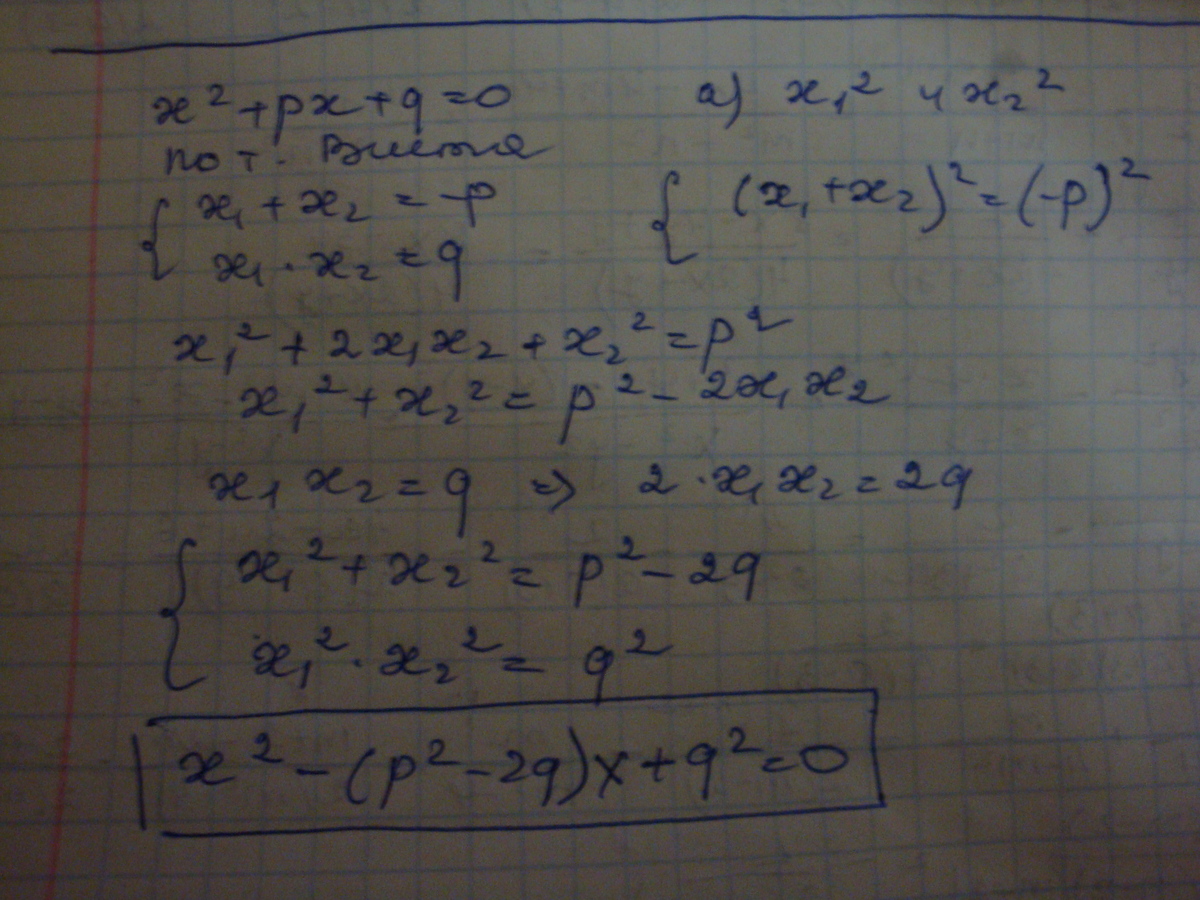 x² + px + q = 0
по т. Виета
{ x₁ + x₂ = -p
x₁ · x₂ = q
а) x₁² и x₂²
{ (x₁ + x₂)² = (-p)²
x₁² + 2x₁x₂ + x₂² = p²
x₁² + x₂² = p² - 2x₁x₂
x₁ x₂ = q ⇒ 2 · x₁ x₂ = 2q
{ x₁² + x₂² = p² - 2q
x₁² · x₂² = q²
x² - (p² - 2q)x + q² = 0